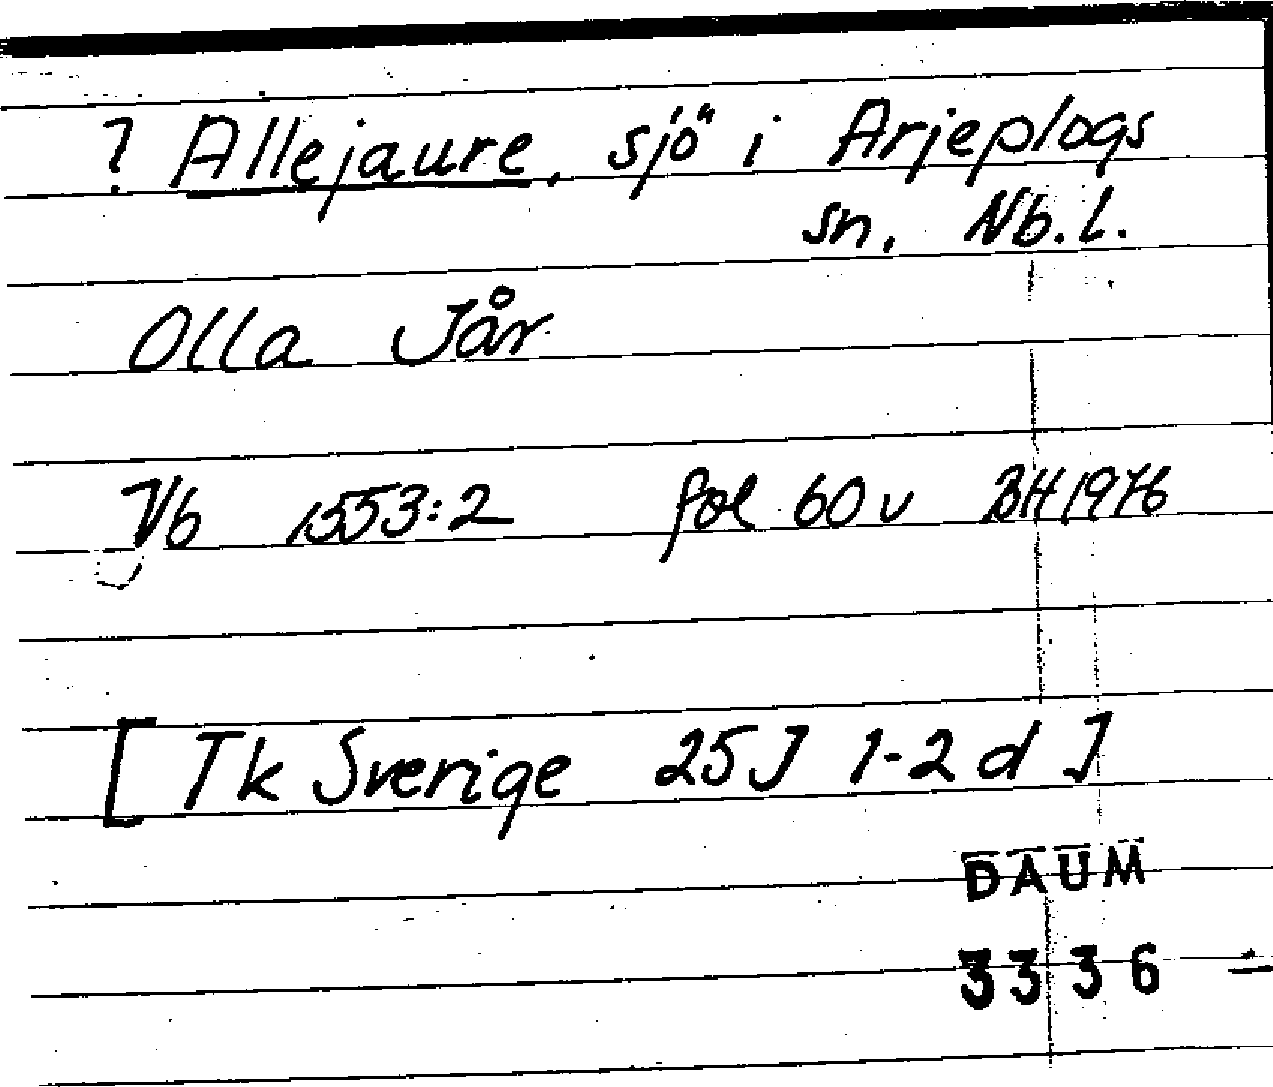 ? Allejaure, sjö i Arjeplogs
sn. Nb.l.
Olla Jår
Vb 1553:2 fol 60 v BH 1976
[Tk Sverige 25J 1-2 d]
DAUM
3336